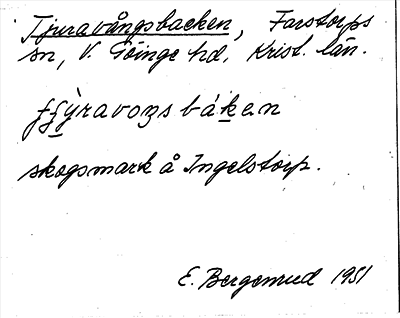 Tjuravångsbacken, Farstorps
sn, V. Göinge hd. Krist. län.
skogsmark å Ingelstorp.
E. Bergemrud 1951